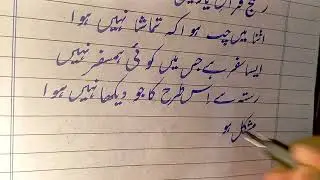 رنج فراق یار میں
اتنا میں چپ ہوا کہ تماشا نہیں ہوا
ایسا سفر ہے جس میں کوئی ہمسفر نہیں
رستہ ہے اس طرح کا جو دیکھا نہیں ہوا
مشکل ہو